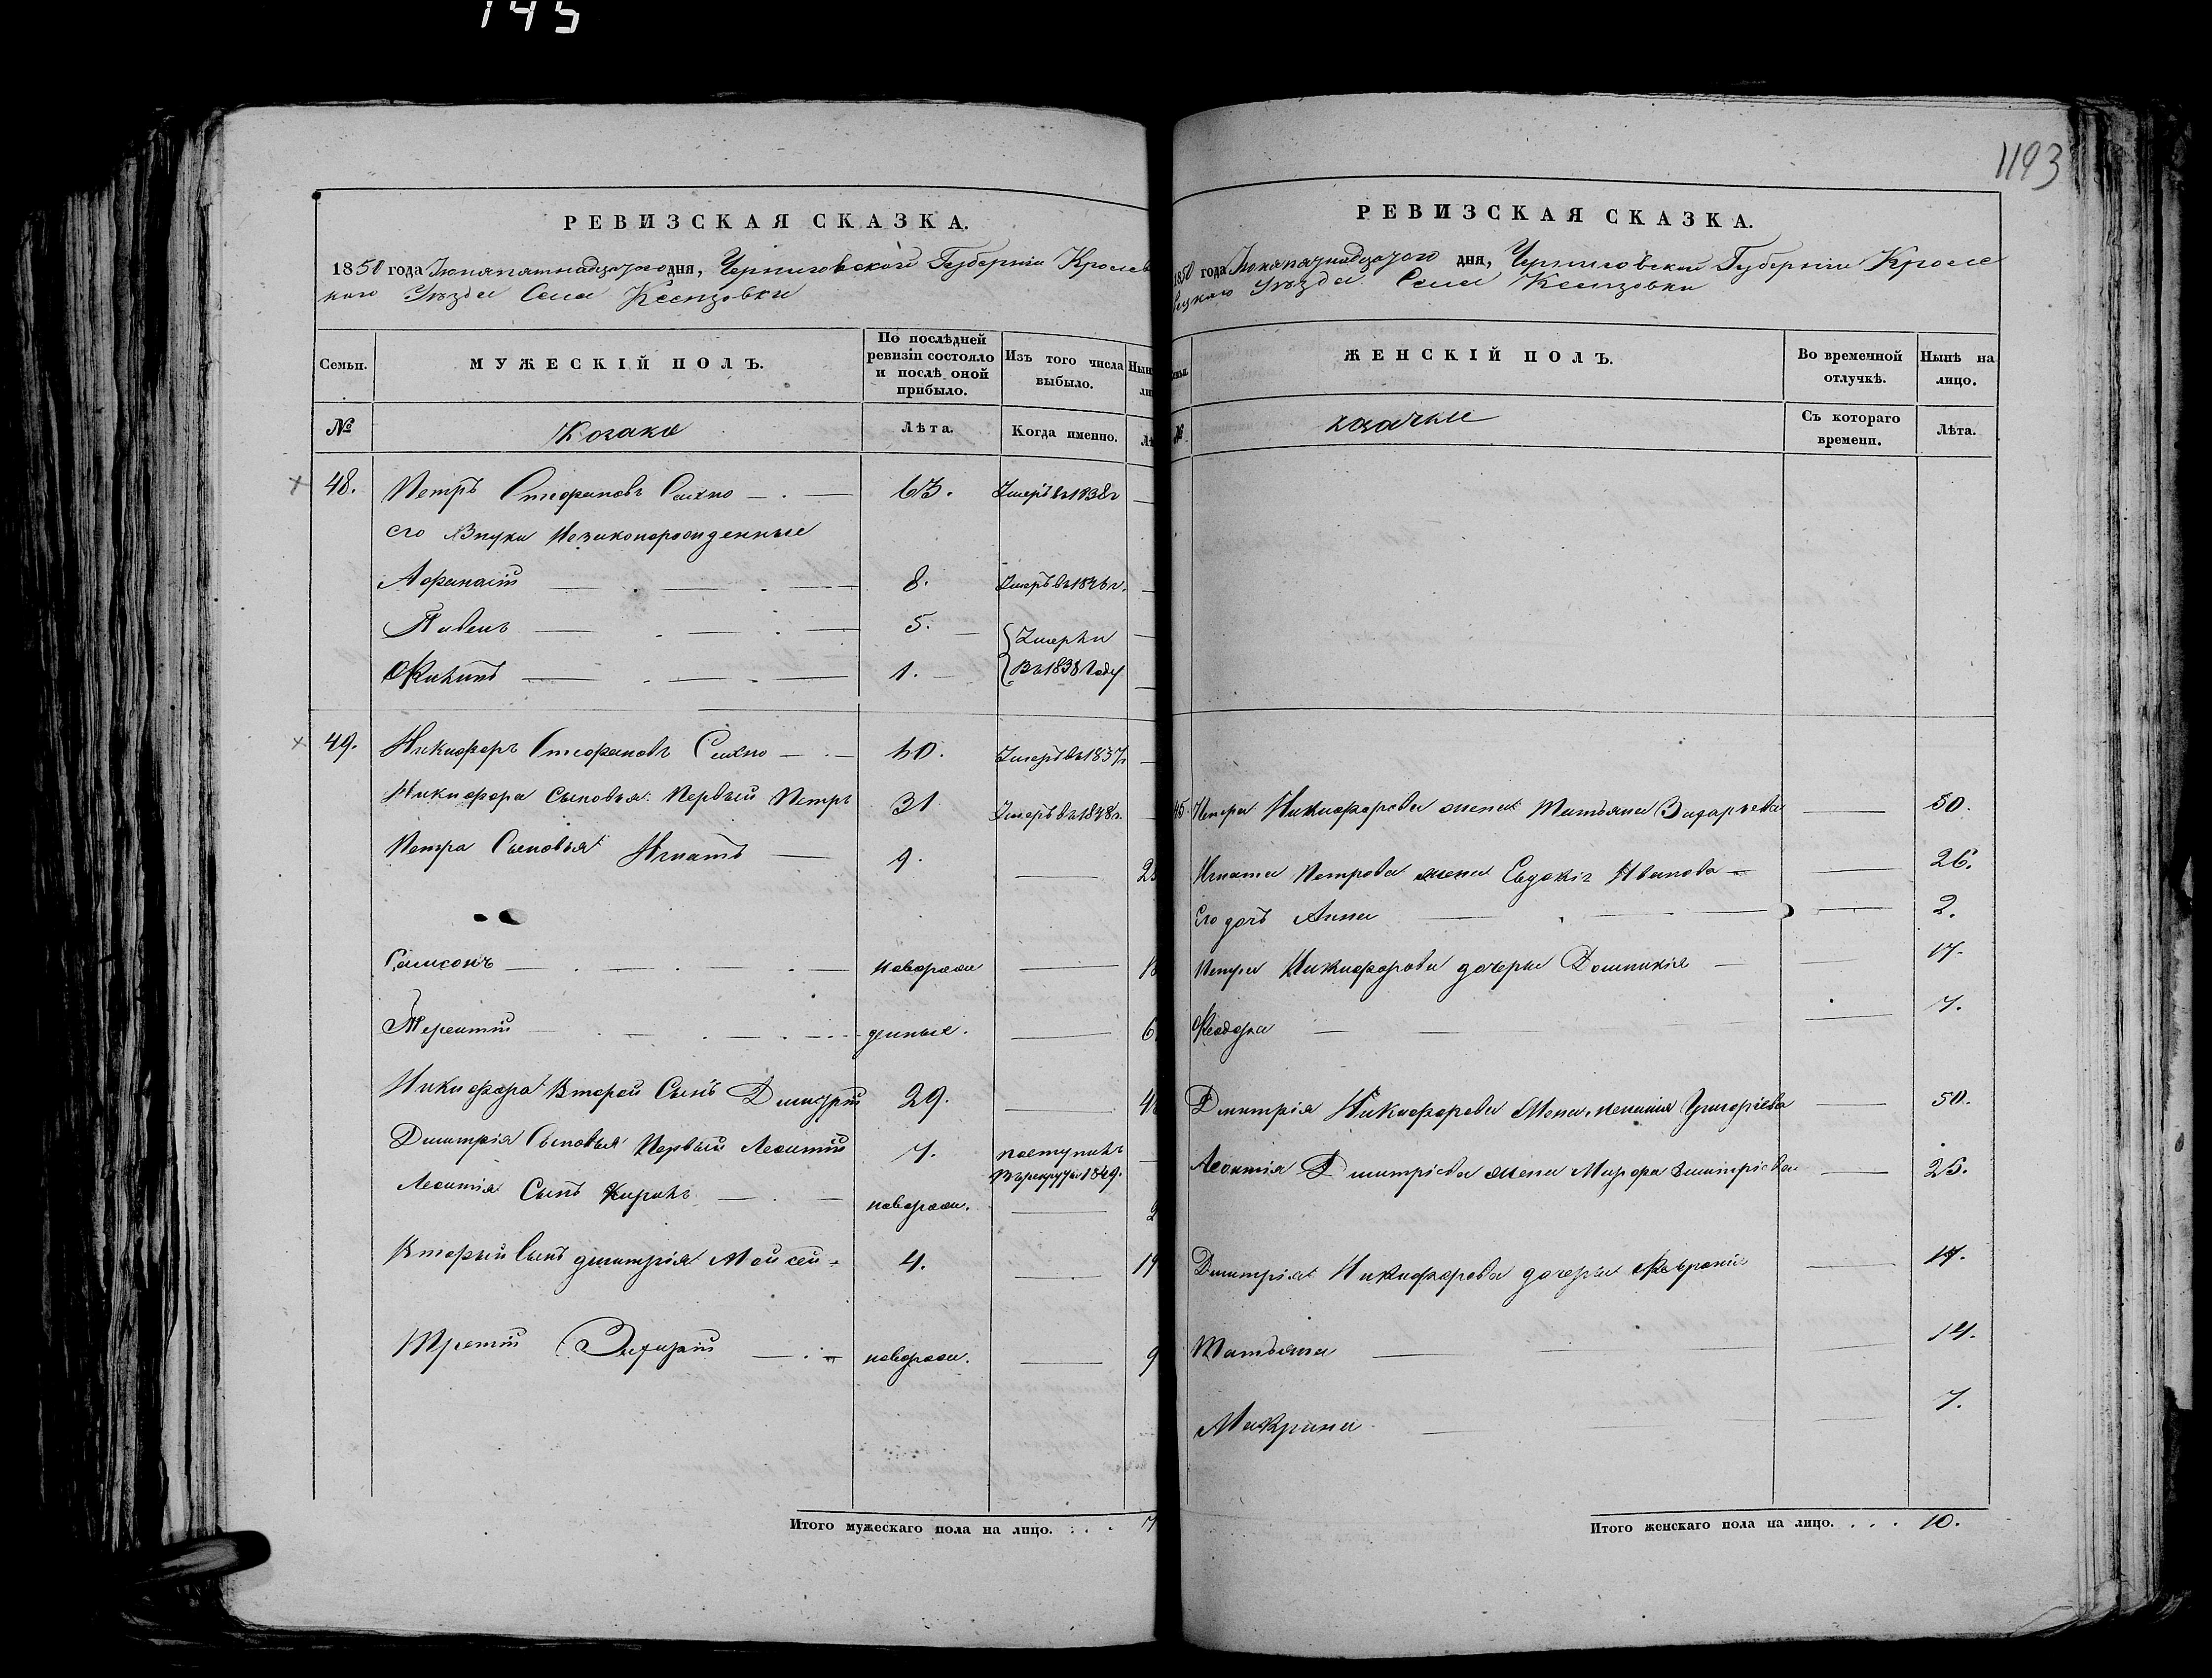 145
1193
РЕВИЗСКАЯ СКАЗКА.
1850 года Іюня пятнадцатого дня, Черниговской Губерніи Кролев
Уѣзда Села
Семьи.
МУЖЕСКІЙ ПОЛЪ.
По послѣдней ревизіи состояло и послѣ оной прибыло.
Изъ того числа выбыло.
№
Козаки
Лѣта.
Когда именно.
48. Петръ Стефановъ Сахно 63. Умеръ въ 1838 г
его Внуки Незаконорожденные
Афанасій 8. Умеръ въ 18
5. Умерли
1. Въ 1838 Году
49. Никифоръ Стефановъ Сахно Умеръ въ 1837 г
Никифора Сыновья: Первый Петръ 31 Умеръ въ 1848 г.
Петра Сыновья Игнатъ 9.
Самсонъ новорож
Терентій денные.
Никифора Второй Сынъ Дмитрій 29.
Дмитрія Сыновья Первый Леонтій 7. поступилъ
въ рекруты 1849.
Леонтія Сынъ новорож.
Вторый Сынъ Дмитрія Мойсей 4. 19
Третій новорож. 9
Итого мужескаго пола на лицо. . . . 7
РЕВИЗСКАЯ СКАЗКА.
1850 года Іюня пятнадцатого дня, Черниговской Губерніи Кроле
вецкаго Уѣзда Села
ЖЕНСКІЙ ПОЛЪ.
Во временной отлучкѣ.
Нынѣ на лицо.
№
козачьи
Съ котораго времени.
Лѣта.
Петра Никифорова жена Татьяна 50.
Игната Петрова жена Евдокія Иванова 26.
Его дочь Анна 2.
Петра Никифорова дочери Домникія 17.
Феодора 7.
Дмитрія Никифорова жена Григорьева 50.
Леонтія Дмитріева жена Дмитріева 25.
Дмитрія Никифорова дочери Февронія 17.
Татьяна 14.
Макрина 7.
Итого женскаго пола на лицо. . . . 10.